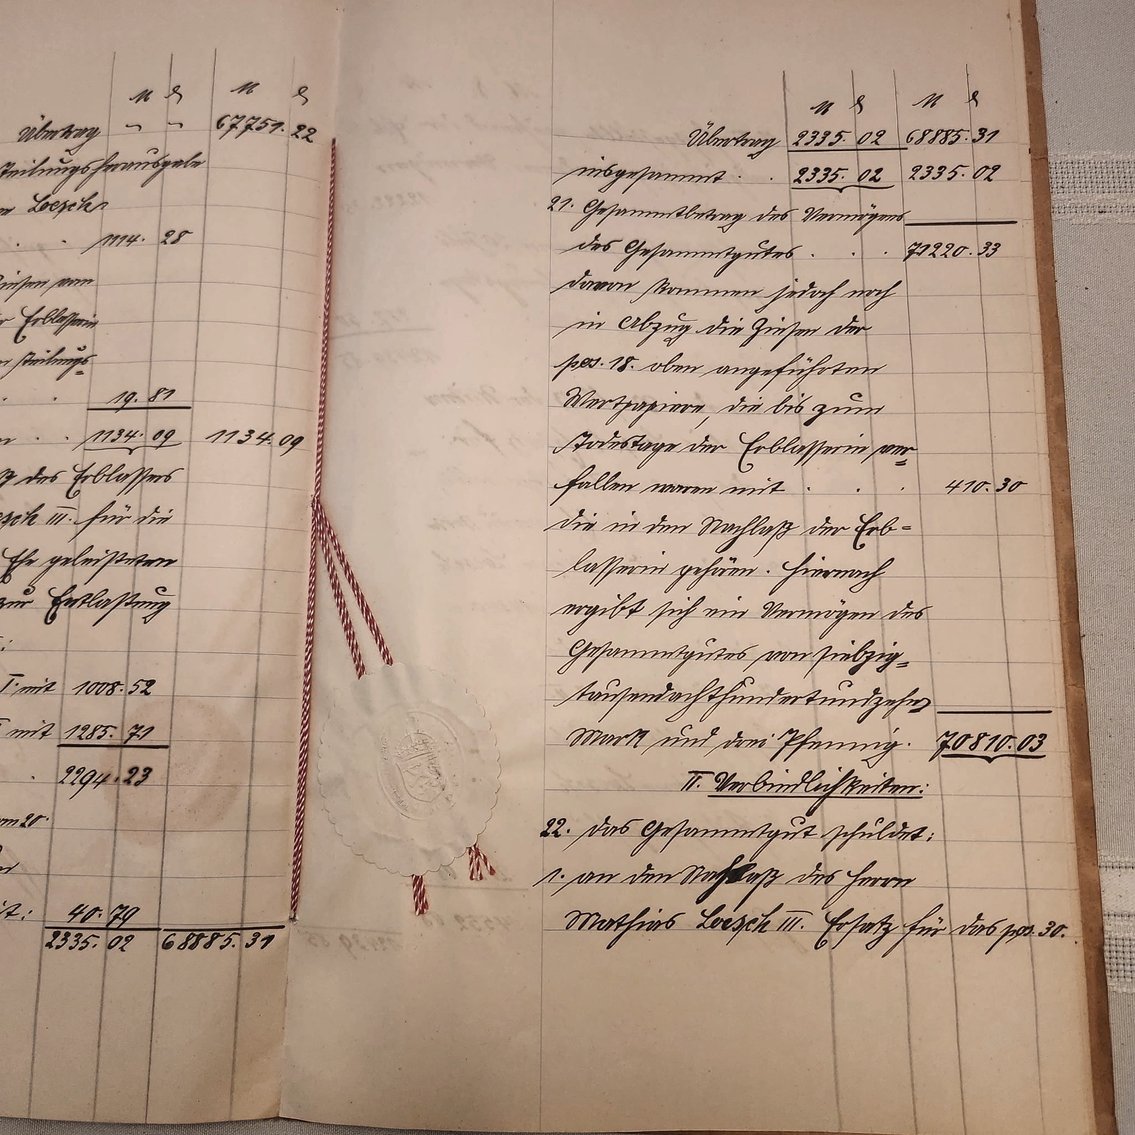 M ₰ M ₰
Übertrag " " 67751. 22
Teilungsherausgabe
Loesch
. . 1114. 28
Zinsen vom
Erblasserin
Teilungs-
. . 19. 81
. . 1134. 09 1134. 09
des Erblassers
Loesch III. für die
Ehe geleisteten
zur Entlastung
:
I. mit 1008. 52
mit 1285. 71
. 2294. 23
vom 20.
40. 79
2335. 02 68885. 31
M ₰ M ₰
Übertrag 2335. 02 68885. 31
insgesammt . . 2335. 02 2335. 02
21. Gesammtbetrag des Vermögens
des Gesammtgutes . . . 71220. 33
davon kommen jedoch noch
in Abzug die Zinsen der
pos. 18. oben angeführten
Wertpapiere, die bis zum
Todestage der Erblasserin ver-
fallen waren mit . . . 410. 30
die in den Nachlaß der Erb-
lasserin gehören. Hiernach
ergibt sich ein Vermögen des
Gesammtgutes von siebzig-
tausendachthundertundzehn
Mark und drei Pfennig. 70810. 03
II. Verbindlichkeiten:
22. Das Gesammtgut schuldet:
1. an den Nachlaß des Herrn
Mathias Loesch III. Ersatz für das pos. 30.